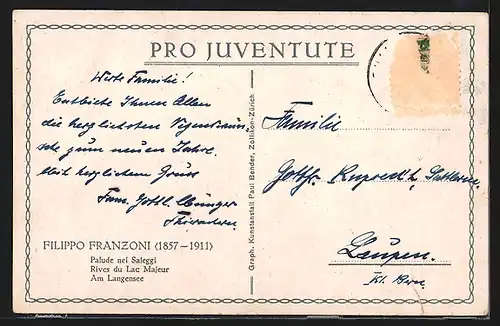 PRO JUVENTUTE
Werte Familie!
Entbiete Ihnen Allen
die herzlichsten Segenswün-
sche zum neuen Jahre.
Mit herzlichem Gruss
Fam. Gottl.
FILIPPO FRANZONI (1857–1911)
Palude nei Saleggi
Rives du Lac Majeur
Am Langensee
Graph. Kunstanstalt Paul Bender, Zollikon-Zürich
Familie
Gottfr. Ruprecht, Sattlerm.
Laupen.
Kt. Bern